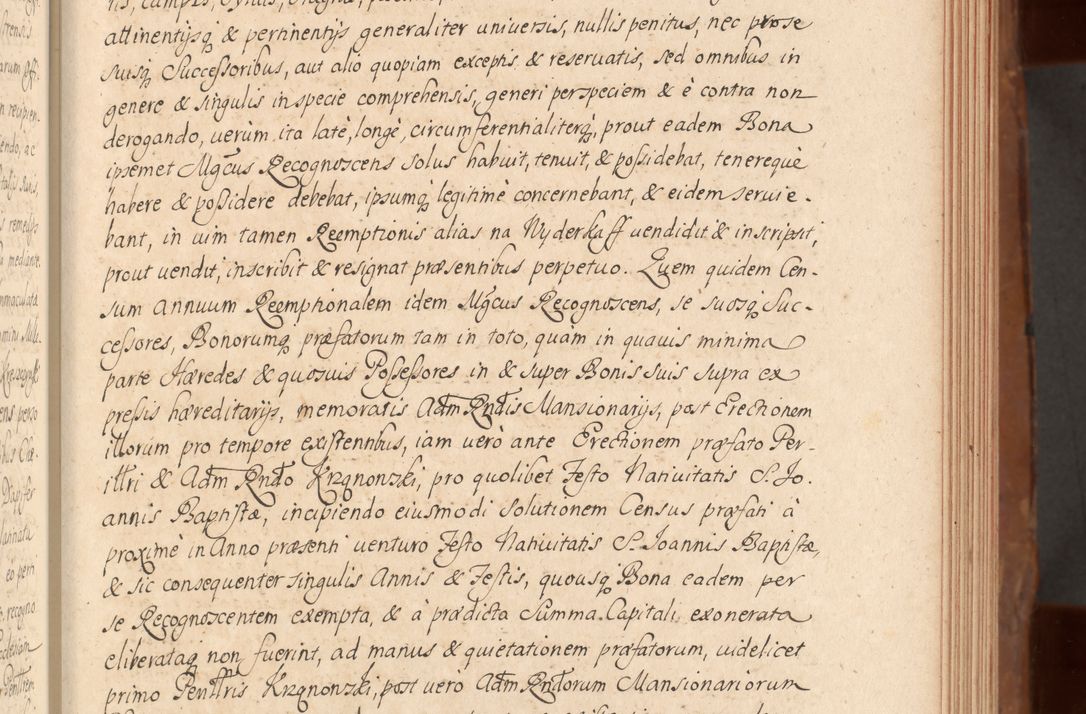 attinentijsq, & pertinentijs generaliter universis, nullis penitus, nec prose
suisq, Successoribus, aut alio quopiam exceptis & reservatis, sed omnibus in
genere & singulis in specie comprehensis, generi per speciem & è contra non
derogando, verùm ita latè, longè, circumferentialiterq, prout eadem Bona
ipsemet Mgcus Recognoscens solus habuit, tenuit, & possidebat, tenereque
habere & possidere debebat, ipsumq, legitimè concernebant, & eidem servie-
bant, in vim tamen Reemptionis alias na Wyderkaff vendidit & inscripsit,
prout vendit, inscribit & resignat præsentibus perpetuo. Quem quidem Cen-
sum Annuum Reemptionalem idem Mgcus Recognoscens, se suosq, Suc-
cessores, Bonorumq, præfatorum tam in toto, quàm in quavis minima
parte Hæredes & quosvis Possessores in & super Bonis suis supra ex
pressis hæreditarijs, memoratis Adm Rndis Mansionarijs, post Erectionem
illorum pro tempore existentibus, iam verò ante Erectionem præfato Per-
illri & Adm Rndo Krzgnonzki, pro quolibet Festo Nativitatis S. Jo.
annis Baptistæ, incipiendo eiusmodi solutionem Census præfati à
proximè in Anno præsenti venturo Festo Nativitatis S. Joannis Baptistæ,
& sic consequenter singulis Annis & Festis, quousq, Bona eadem per
se Recognoscentem exempta, & à prædicta Summa Capitali exonerata
eliberataq, non fuerint, ad manus & quietationem præfatorum, videlicet
primo Penllris Krzgnonzki, post vero Adm Rndorum Mansionariorum